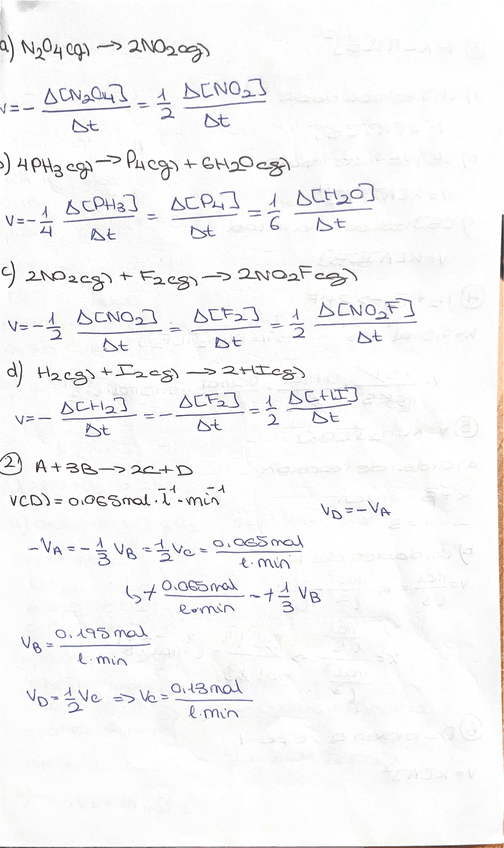 a) N2O4(g) → 2NO2(g)
v = - Δ[N2O4]/Δt = 1/2 Δ[NO2]/Δt
b) 4PH3(g) → P4(g) + 6H2O(g)
v = - 1/4 Δ[PH3]/Δt = Δ[P4]/Δt = 1/6 Δ[H2O]/Δt
c) 2NO2(g) + F2(g) → 2NO2F(g)
v = - 1/2 Δ[NO2]/Δt = Δ[F2]/Δt = 1/2 Δ[NO2F]/Δt
d) H2(g) + I2(g) → 2HI(g)
v = - Δ[H2]/Δt = - Δ[F2]/Δt = 1/2 Δ[HI]/Δt
2 A + 3B → 2C + D
V(D) = 0.065 mol·l⁻¹·min⁻¹
VD = -VA
-VA = - 1/3 VB = 1/2 VC = 0.065 mol/l·min
↳ + 0.065 mol/l·min = + 1/3 VB
VB = 0.195 mol/l·min
VD = 1/2 VC ⇒ VC = 0.13 mol/l·min